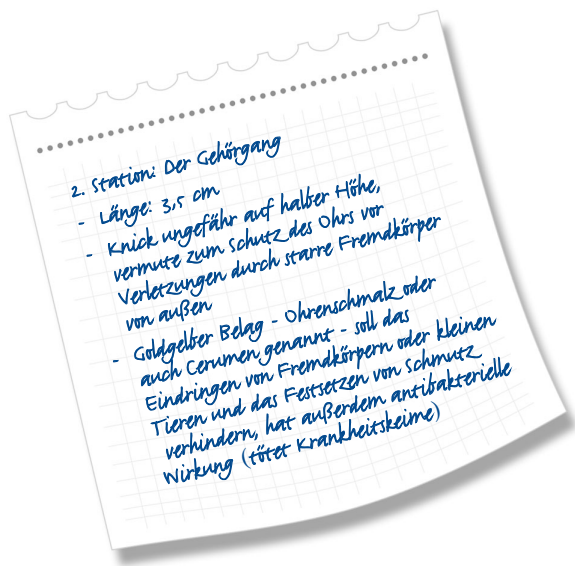 2. Station: Der Gehörgang
- Länge: 3,5 cm
- Knick ungefähr auf halber Höhe,
vermute zum Schutz des Ohrs vor
Verletzungen durch starre Fremdkörper
von außen
- Goldgelber Belag - Ohrenschmalz oder
auch Cerumen genannt - soll das
Eindringen von Fremdkörpern oder kleinen
Tieren und das Festsetzen von Schmutz
verhindern, hat außerdem antibakterielle
Wirkung (tötet Krankheitskeime)